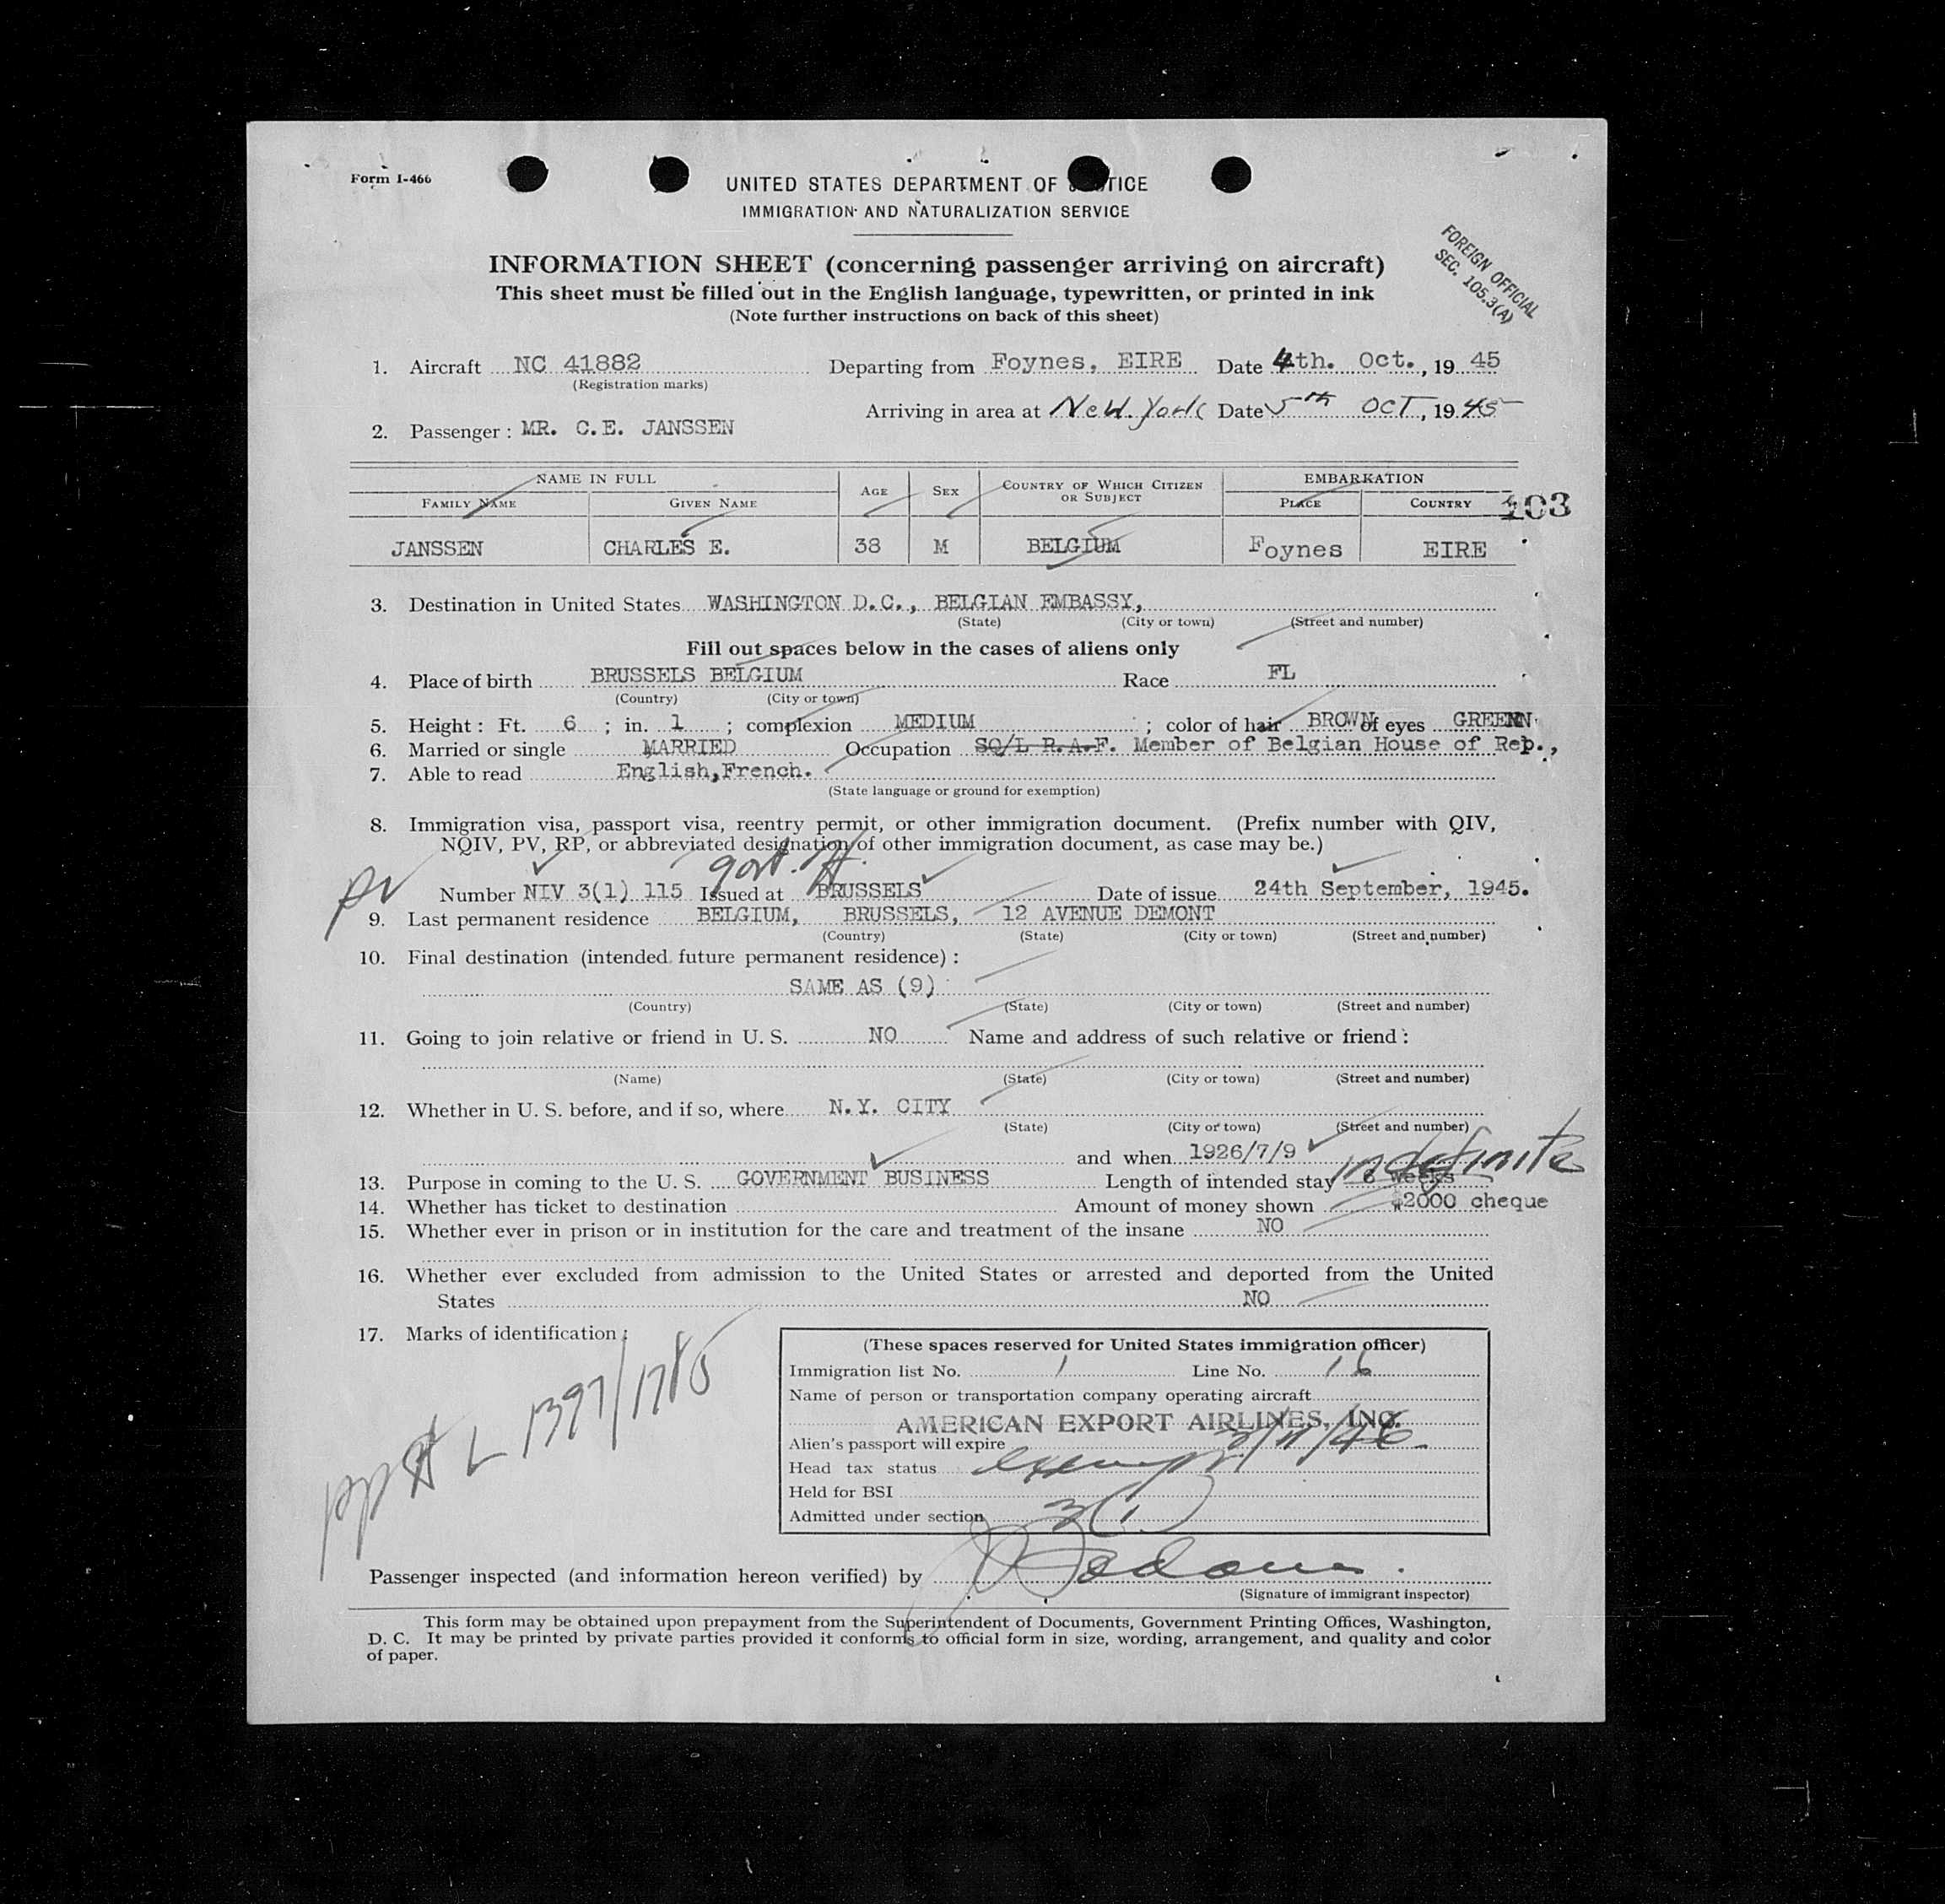 Form I-466
UNITED STATES DEPARTMENT OF JUSTICE
IMMIGRATION AND NATURALIZATION SERVICE
FOREIGN OFFICIAL
SEC. 105.3(A)
INFORMATION SHEET (concerning passenger arriving on aircraft)
This sheet must be filled out in the English language, typewritten, or printed in ink
(Note further instructions on back of this sheet)
1. Aircraft NC 41882 Departing from Foynes, EIRE Date 4th. Oct., 19 45
(Registration marks)
Arriving in area at New York Date 5th OCT, 19 45
2. Passenger: MR. C.E. JANSSEN
NAME IN FULL AGE SEX COUNTRY OF WHICH CITIZEN OR SUBJECT EMBARKATION
FAMILY NAME GIVEN NAME PLACE COUNTRY 103
JANSSEN CHARLES E. 38 M BELGIUM Foynes EIRE
3. Destination in United States WASHINGTON D.C., BELGIAN EMBASSY,
(State) (City or town) (Street and number)
Fill out spaces below in the cases of aliens only
4. Place of birth BRUSSELS BELGIUM Race FL
(Country) (City or town)
5. Height: Ft. 6; in. 1; complexion MEDIUM; color of hair BROWN of eyes GREEN
6. Married or single MARRIED Occupation SQ/L R.A.F. Member of Belgian House of Rep.,
7. Able to read English,French.
(State language or ground for exemption)
8. Immigration visa, passport visa, reentry permit, or other immigration document. (Prefix number with QIV,
NQIV, PV, RP, or abbreviated designation of other immigration document, as case may be.)
pv govt.
Number NIV 3(1) 115 Issued at BRUSSELS Date of issue 24th September, 1945.
9. Last permanent residence BELGIUM, BRUSSELS, 12 AVENUE DEMONT
(Country) (State) (City or town) (Street and number)
10. Final destination (intended future permanent residence):
SAME AS (9)
(Country) (State) (City or town) (Street and number)
11. Going to join relative or friend in U. S. NO Name and address of such relative or friend:
(Name) (State) (City or town) (Street and number)
12. Whether in U. S. before, and if so, where N.Y. CITY
(State) (City or town) (Street and number)
and when 1926/7/9
indefinite
13. Purpose in coming to the U. S. GOVERNMENT BUSINESS Length of intended stay 6 weeks
14. Whether has ticket to destination Amount of money shown $2000 cheque
15. Whether ever in prison or in institution for the care and treatment of the insane NO
16. Whether ever excluded from admission to the United States or arrested and deported from the United
States NO
17. Marks of identification:
pp L 1397/1785
(These spaces reserved for United States immigration officer)
Immigration list No. 1 Line No. 16
Name of person or transportation company operating aircraft
AMERICAN EXPORT AIRLINES, INC.
Alien's passport will expire
Head tax status exempt
Held for BSI
Admitted under section 3(1)
Passenger inspected (and information hereon verified) by
(Signature of immigrant inspector)
This form may be obtained upon prepayment from the Superintendent of Documents, Government Printing Offices, Washington,
D. C. It may be printed by private parties provided it conforms to official form in size, wording, arrangement, and quality and color
of paper.